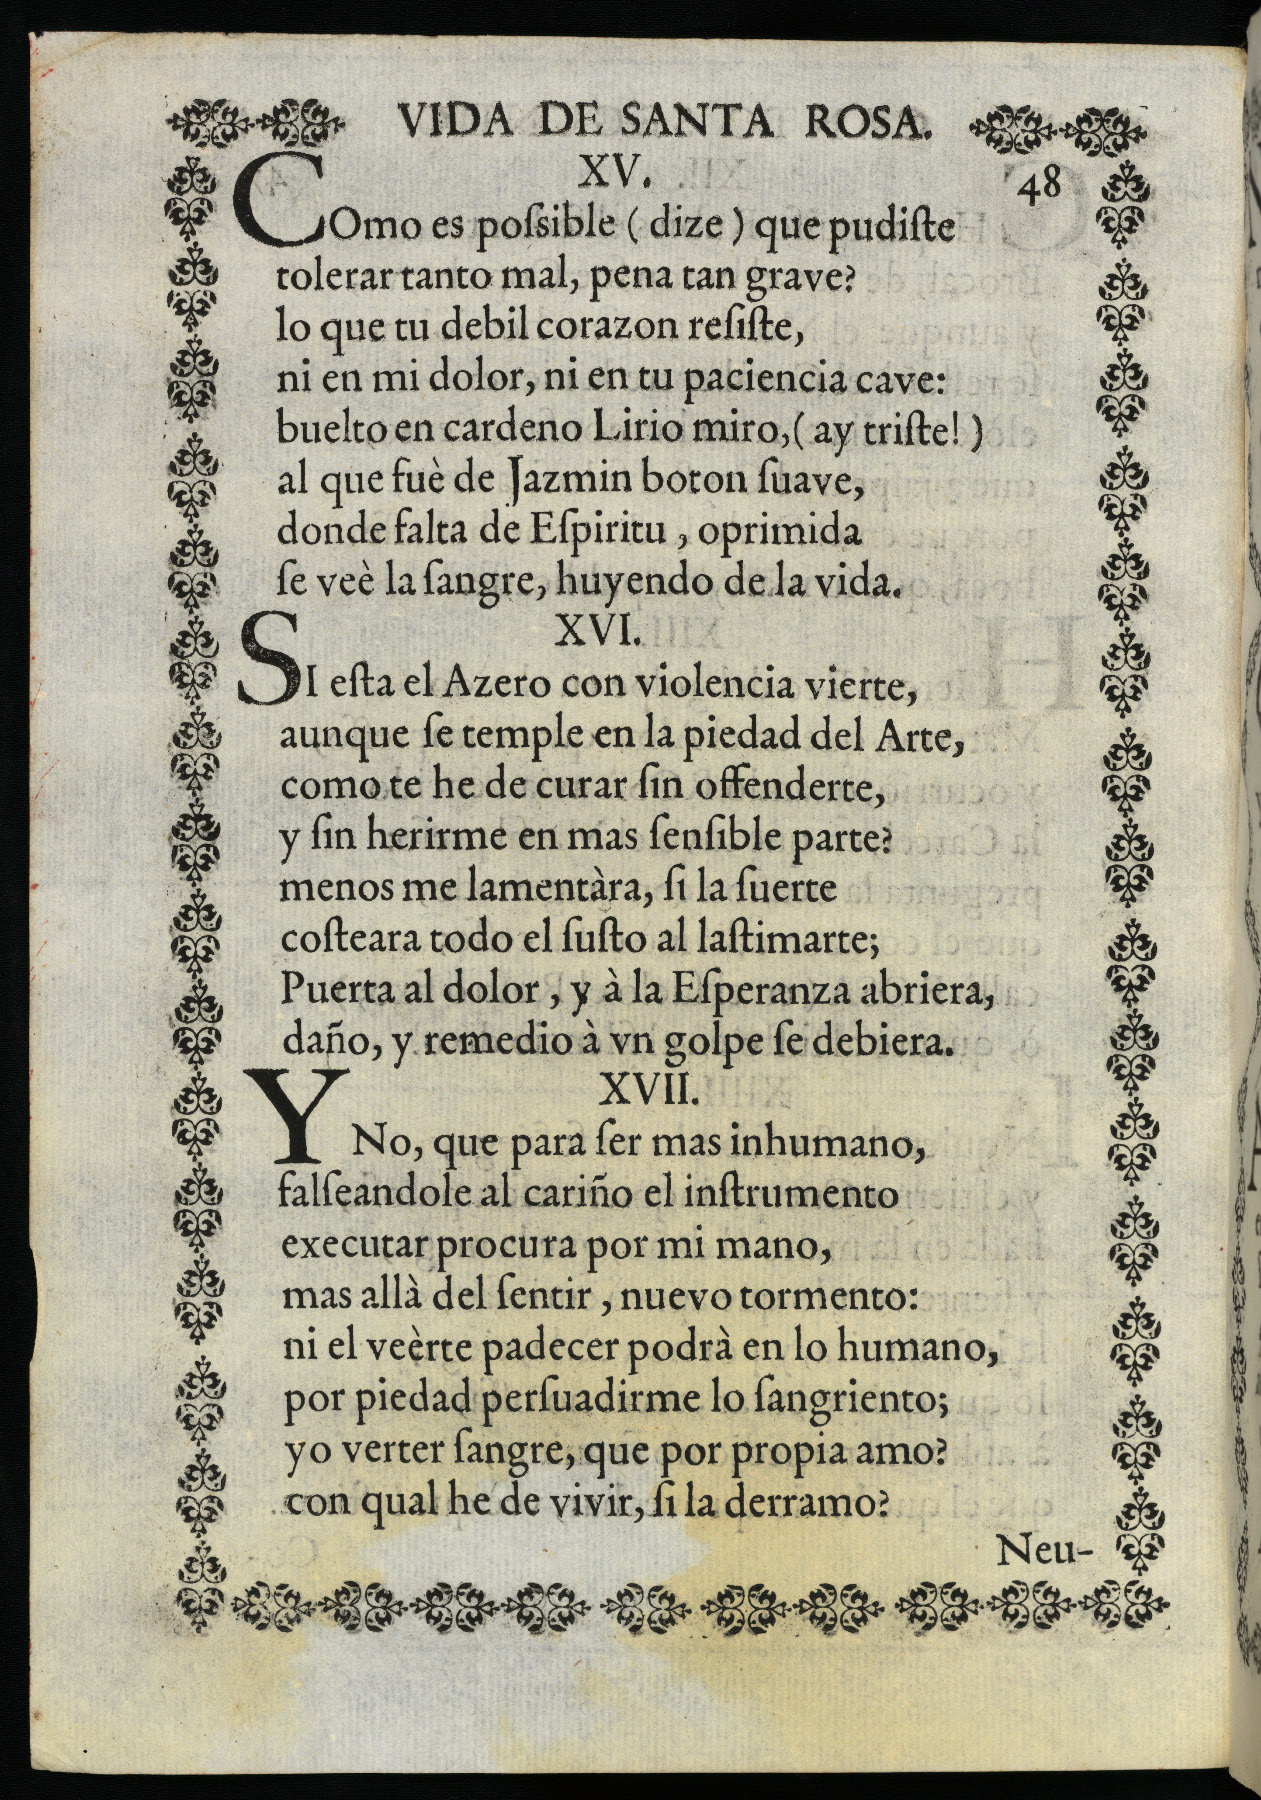 VIDA DE SANTA ROSA.
XV.
48
COmo es poſsible ( dize ) que pudiſte
tolerar tanto mal, pena tan grave?
lo que tu debil corazon reſiſte,
ni en mi dolor, ni en tu paciencia cave:
buelto en cardeno Lirio miro,( ay triſte! )
al que fuè de Jazmin boton ſuave,
donde falta de Eſpiritu , oprimida
ſe veè la ſangre, huyendo de la vida.
XVI.
SI eſta el Azero con violencia vierte,
aunque ſe temple en la piedad del Arte,
como te he de curar ſin offenderte,
y ſin herirme en mas ſenſible parte?
menos me lamentàra, ſi la ſuerte
coſteara todo el ſuſto al laſtimarte;
Puerta al dolor , y à la Eſperanza abriera,
daño, y remedio à vn golpe ſe debiera.
XVII.
Y No, que para ſer mas inhumano,
falſeandole al cariño el inſtrumento
executar procura por mi mano,
mas allà del ſentir , nuevo tormento:
ni el veèrte padecer podrà en lo humano,
por piedad perſuadirme lo ſangriento;
yo verter ſangre, que por propia amo?
con qual he de vivir, ſi la derramo?
Neu-